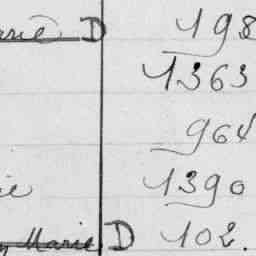 D 198
1363
964
1390
Marie D 102.